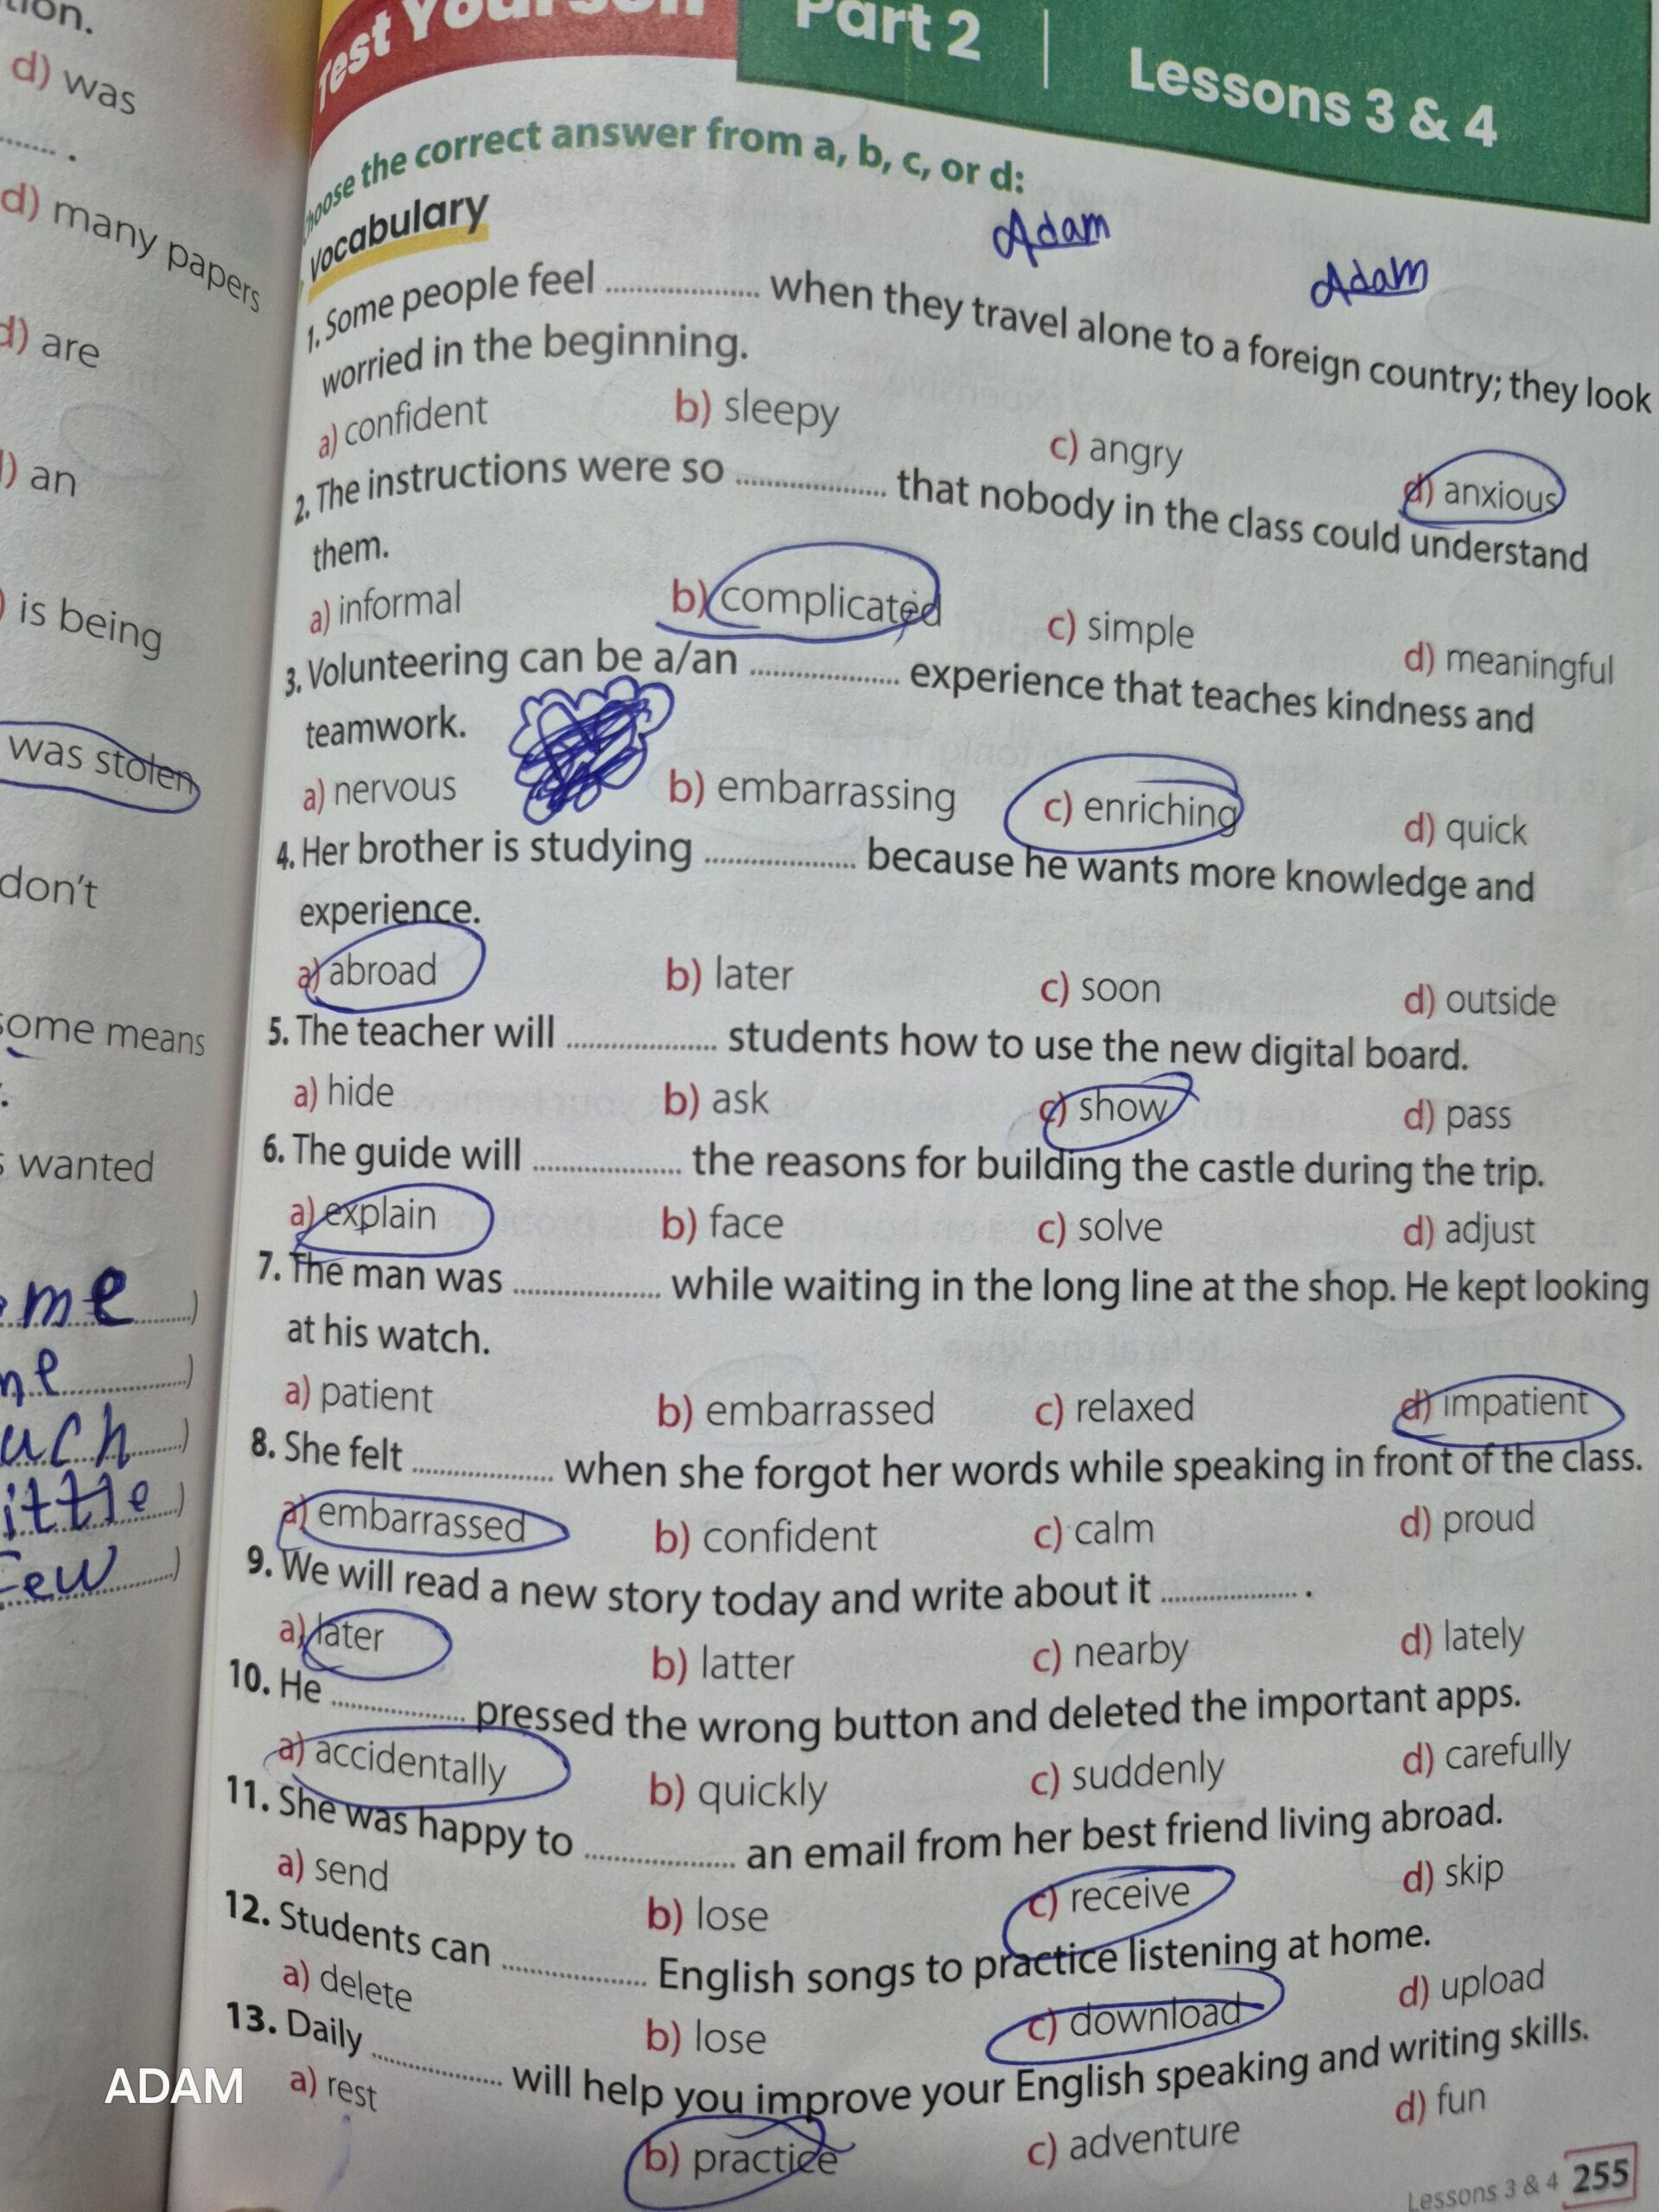 d) was
d) many papers
d) are
an
is being
was stolen
don't
some means
wanted
me
little
Few
Test Yourself
Part 2
Lessons 3 & 4
Choose the correct answer from a, b, c, or d:
Vocabulary
Adam
Adam
1. Some people feel .................. when they travel alone to a foreign country; they look
worried in the beginning.
a) confident b) sleepy c) angry d) anxious
2. The instructions were so .................. that nobody in the class could understand
them.
a) informal b) complicated c) simple d) meaningful
3. Volunteering can be a/an .................. experience that teaches kindness and
teamwork.
a) nervous b) embarrassing c) enriching d) quick
4. Her brother is studying .................. because he wants more knowledge and
experience.
a) abroad b) later c) soon d) outside
5. The teacher will .................. students how to use the new digital board.
a) hide b) ask c) show d) pass
6. The guide will .................. the reasons for building the castle during the trip.
a) explain b) face c) solve d) adjust
7. The man was .................. while waiting in the long line at the shop. He kept looking
at his watch.
a) patient b) embarrassed c) relaxed d) impatient
8. She felt .................. when she forgot her words while speaking in front of the class.
a) embarrassed b) confident c) calm d) proud
9. We will read a new story today and write about it .................. .
a) later b) latter c) nearby d) lately
10. He .................. pressed the wrong button and deleted the important apps.
a) accidentally b) quickly c) suddenly d) carefully
11. She was happy to .................. an email from her best friend living abroad.
a) send b) lose c) receive d) skip
12. Students can .................. English songs to practice listening at home.
a) delete b) lose c) download d) upload
13. Daily .................. will help you improve your English speaking and writing skills.
a) rest b) practice c) adventure d) fun
Lessons 3 & 4 255
ADAM